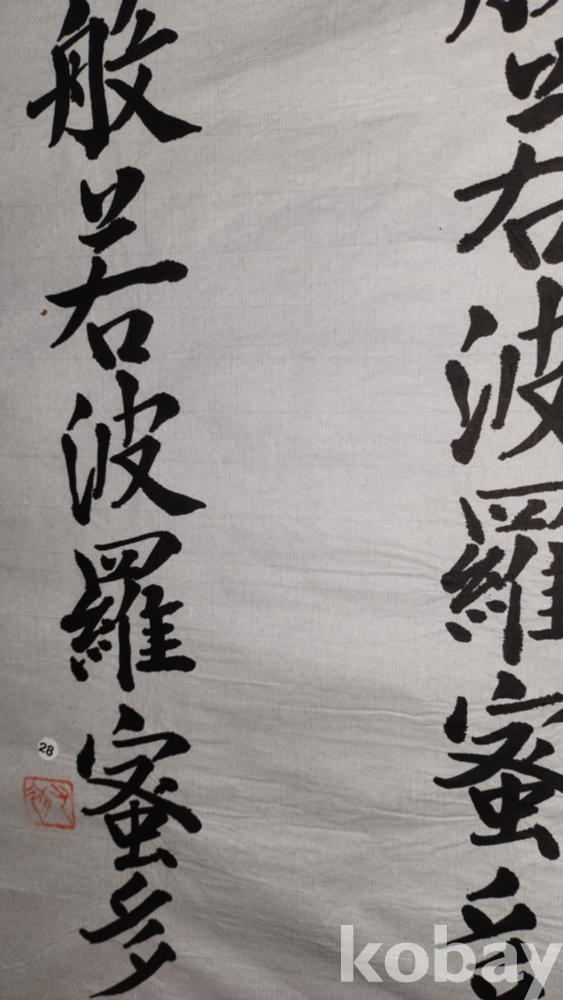 般若波羅蜜多
般若波羅蜜多
28
kobay